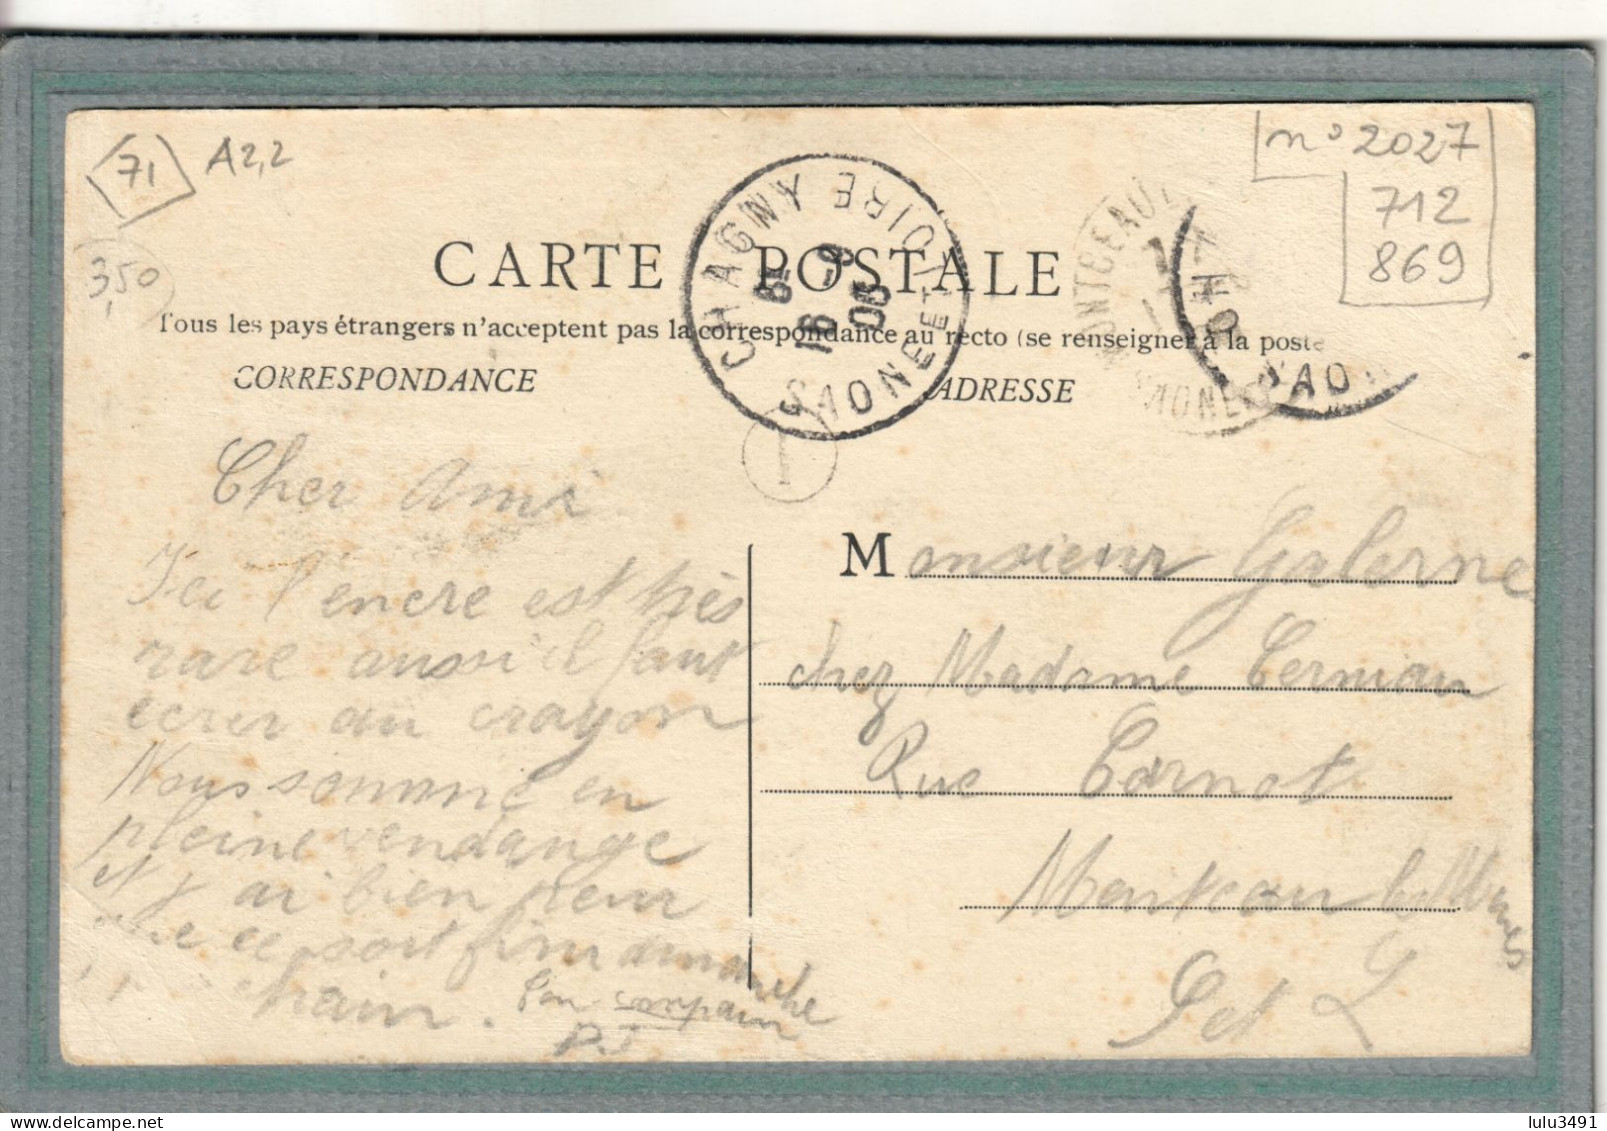 71
A2,2
n° 2027
712
869
3,50
CARTE POSTALE
Tous les pays étrangers n'acceptent pas la correspondance au recto (se renseigner à la poste
CORRESPONDANCE
ADRESSE
CHAGNY
SAONE ET LOIRE
6E
18 -9
05
MONTCEAU
SAONE
Cher Ami
Ici l'encre est très
rare aussi il faut
ecrir au crayon
Nous somme en
pleine vendange
et j ai bien peur
que ce soit fini dimanche
chain. Ton compain
D.J
Monsieur Galerne
chez Madame Terniau
Rue Carnot
Montceau les Mines
S et L
lulu3491